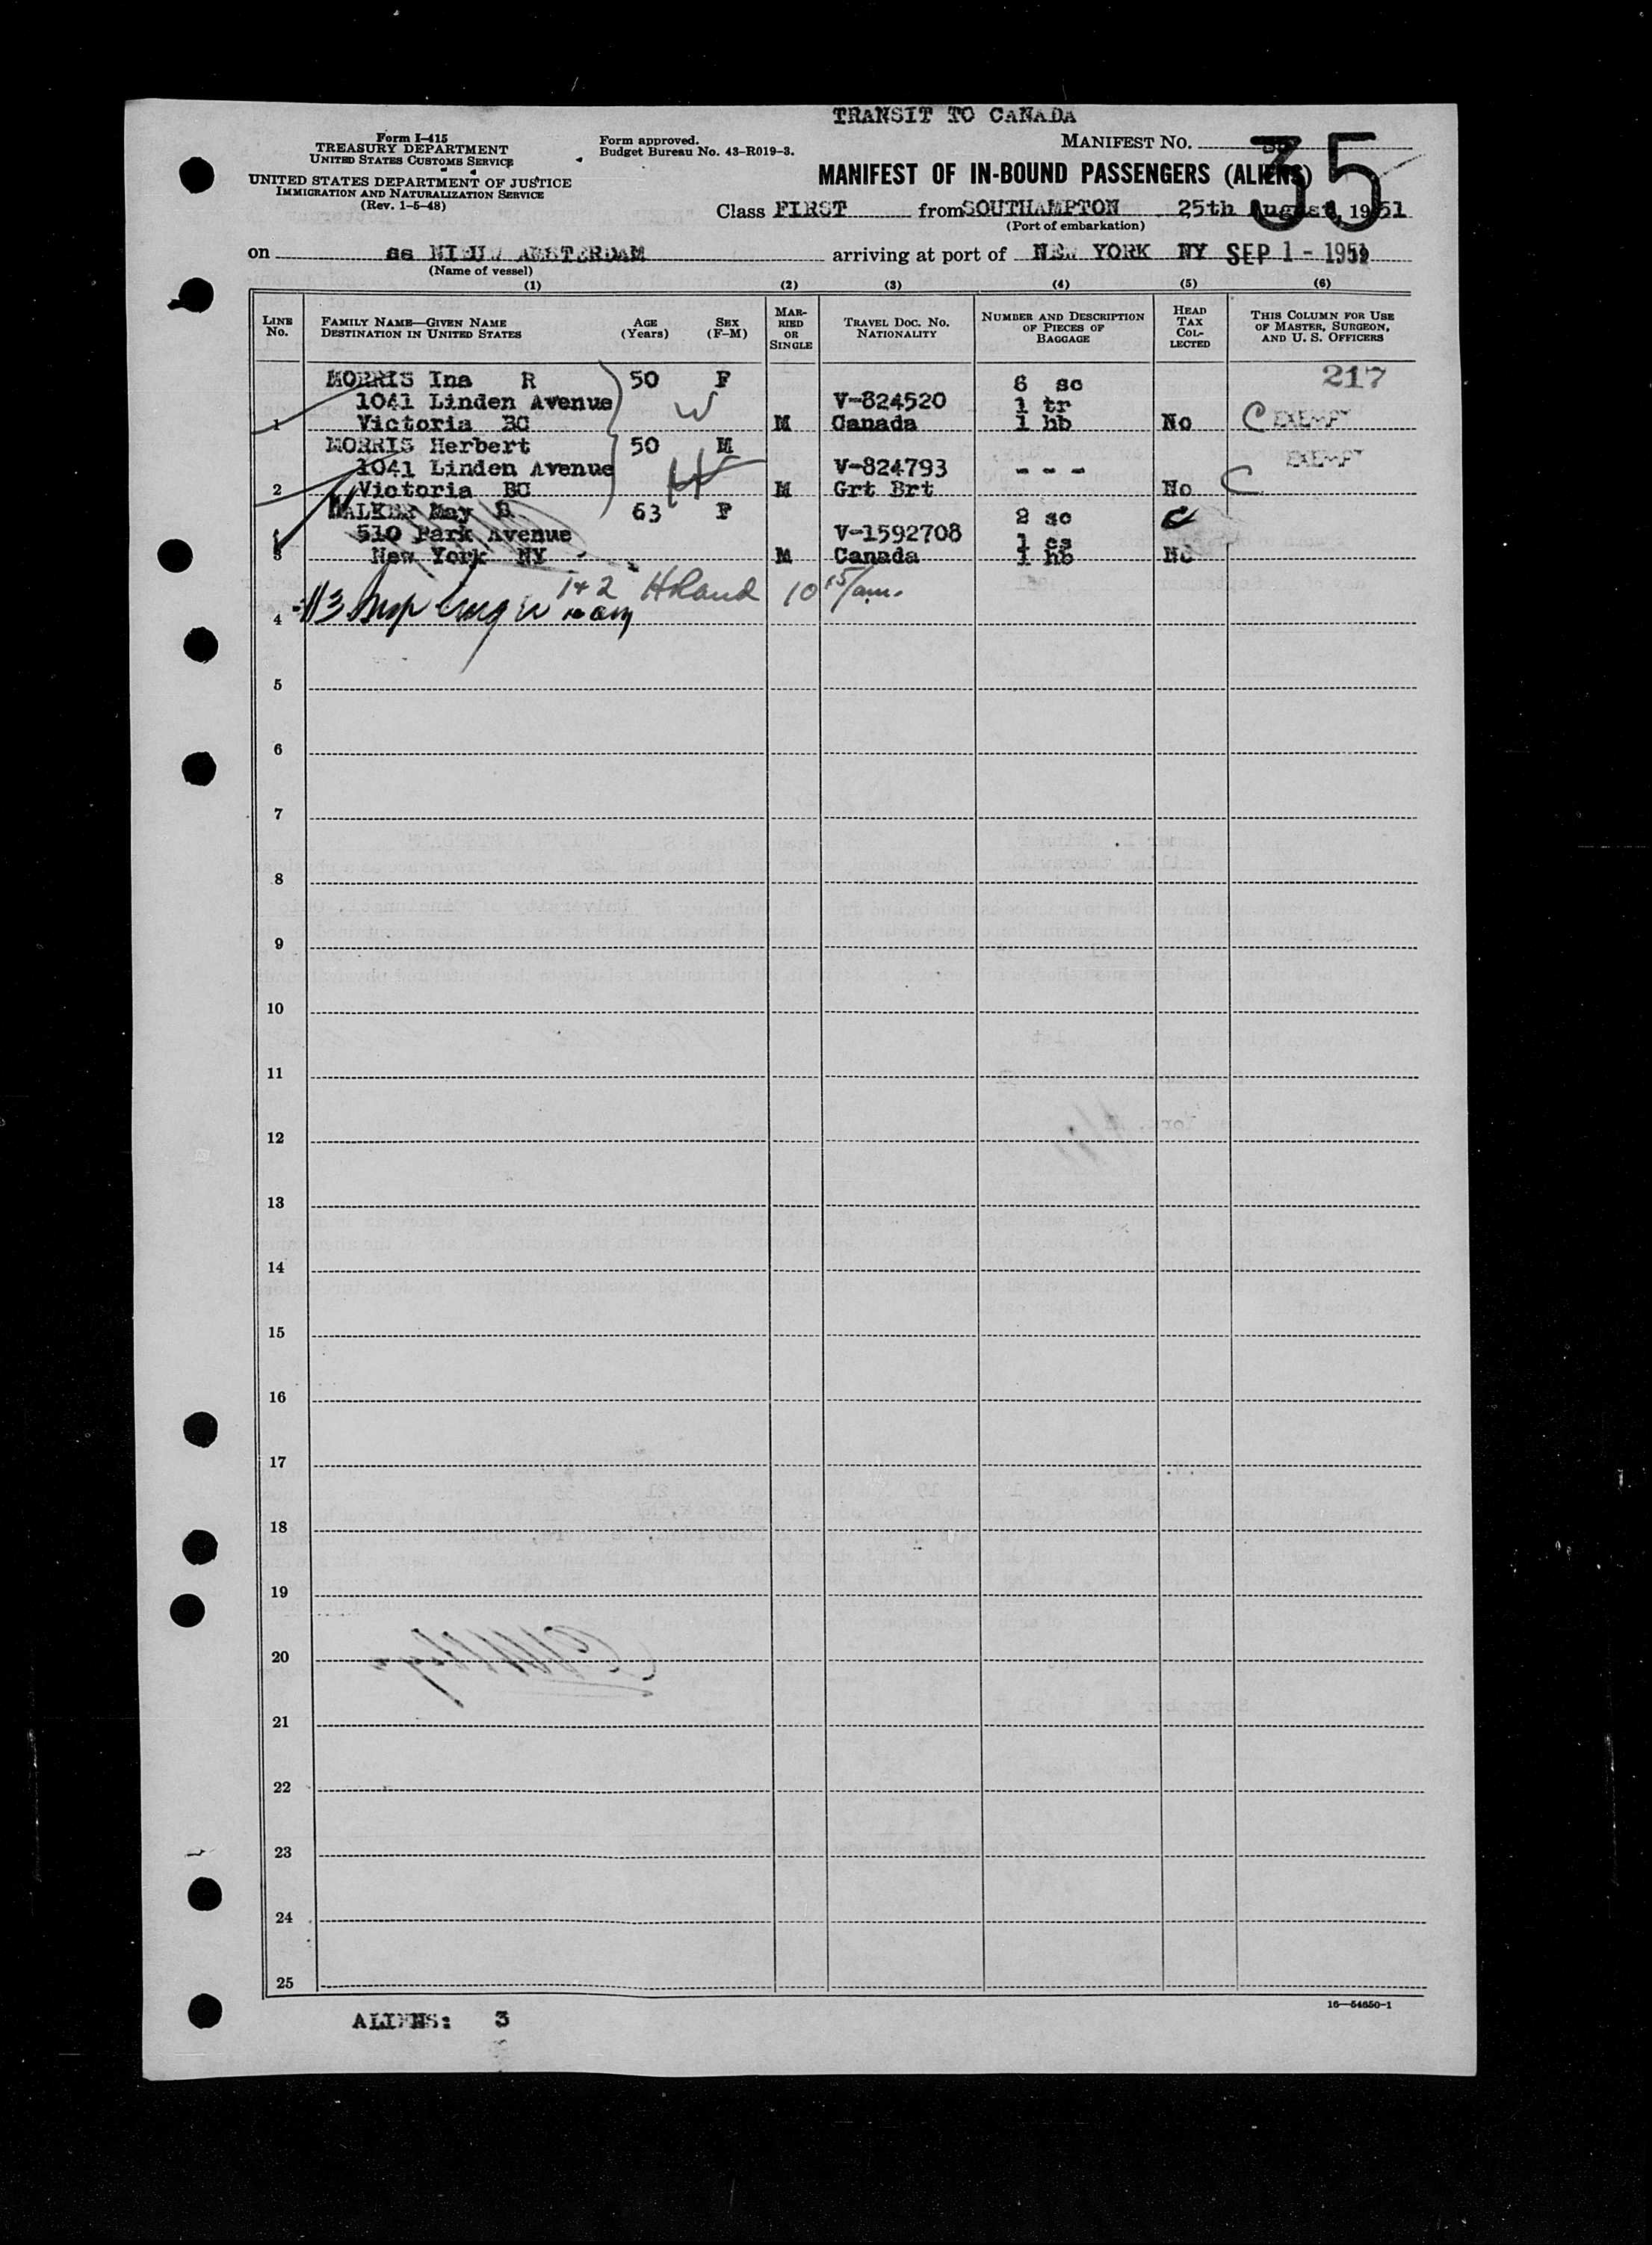 TRANSIT TO CANADA
Form I-415
TREASURY DEPARTMENT
UNITED STATES CUSTOMS SERVICE
UNITED STATES DEPARTMENT OF JUSTICE
IMMIGRATION AND NATURALIZATION SERVICE
(Rev. 1-5-48)
Form approved.
Budget Bureau No. 43-R019-3.
MANIFEST NO. 35
MANIFEST OF IN-BOUND PASSENGERS (ALIENS)
Class FIRST from SOUTHAMPTON 25th August, 1951
(Port of embarkation)
on ss NIEUW AMSTERDAM arriving at port of NEW YORK NY SEP 1 - 1951
(Name of vessel)
(1) (2) (3) (4) (5) (6)
LINE No. FAMILY NAME—GIVEN NAME DESTINATION IN UNITED STATES AGE (Years) SEX (F-M) MARRIED OR SINGLE TRAVEL DOC. NO. NATIONALITY NUMBER AND DESCRIPTION OF PIECES OF BAGGAGE HEAD TAX COLLECTED THIS COLUMN FOR USE OF MASTER, SURGEON, AND U. S. OFFICERS
MORRIS Ina R 50 F 6 sc 217
1041 Linden Avenue W V-824520 1 tr
1 Victoria BC M Canada 1 hb No C EXEMPT
MORRIS Herbert 50 M
1041 Linden Avenue H V-824793 - - - EXEMPT
2 Victoria BC M Grt Brt No C
WALKER May 63 F 2 sc C
510 Park Avenue V-1592708 1 cs
3 New York NY M Canada 1 hb No
1+2 10 15/am.
#3 Insp
4
5
6
7
8
9
10
11
12
13
14
15
16
17
18
19
20
21
22
23
24
25
16—54650-1
ALIENS: 3